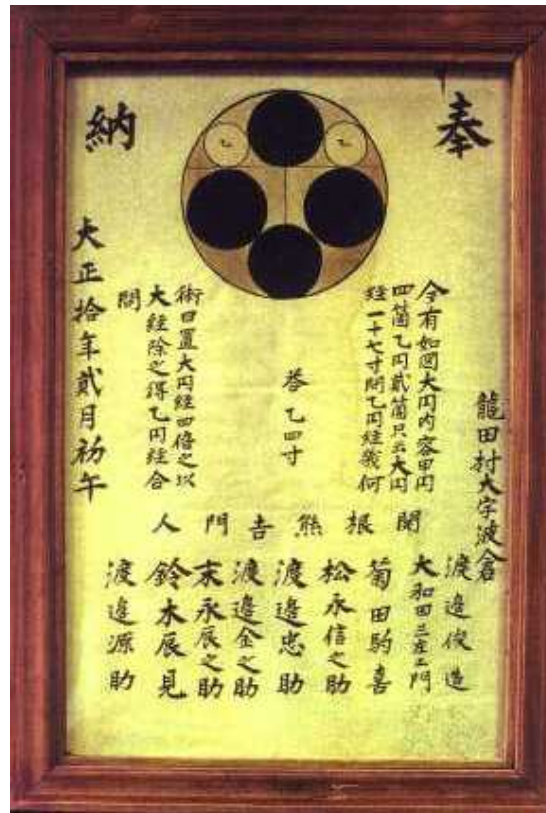 奉
納
乙
乙
龍田村大字波倉
今有如図大円内容甲円
四箇乙円貳箇只云大円
経一十七寸問乙円経幾何
答 乙四寸
術曰置大円経四倍之以
大経除之得乙円経合
問
大正拾年貳月初午
関根熊吉門人
渡邊俊造
大和田三左エ門
菊田駒喜
松永信之助
渡邊忠助
渡邊金之助
末永辰之助
鈴木辰見
渡邊源助